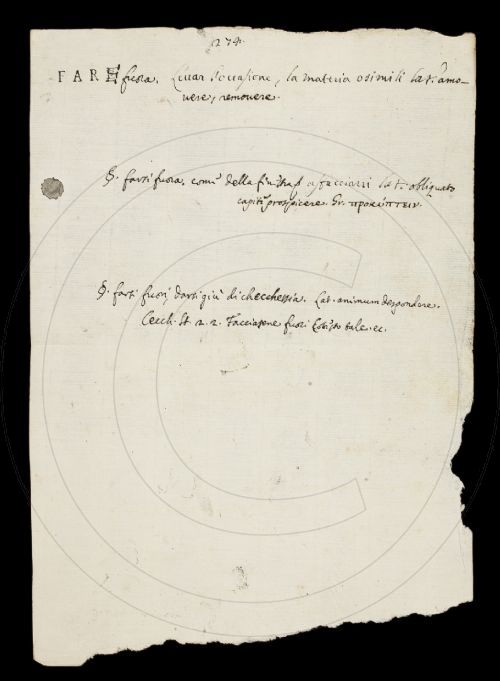 274.
FARE fuora. Levar l'occasione, la materia o simili Lat. amo-
vere, removere.
§. farsi fuora, come della finestra affacciarsi Lat. obliquato
capite prospicere. Gr. προκύπτειν.
§. farsi fuori, darsi giù di checchessia. Lat. animum despondere.
Cecch. St. 2. 2. Facciasene fuori tale. ec.